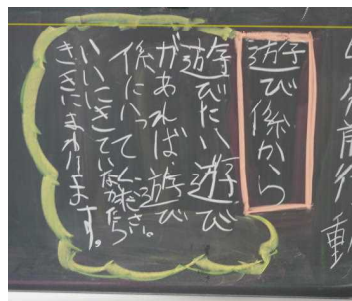 遊び係から
遊びたい遊び
があれば、遊び
係にいってください。
いいにきていなかったら
ききにまわります。